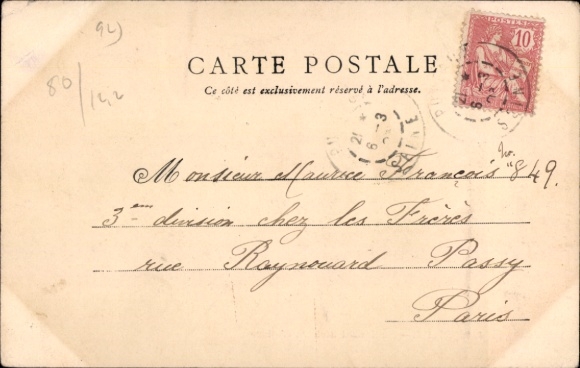 92)
80/122
POSTES
10
CARTE POSTALE
Ce côté est exclusivement réservé à l'adresse.
21
8 - 3
SEINE
No.
Monsieur Maurice François "849.
3em division chez les Frères
rue Raynouard Passy
Paris